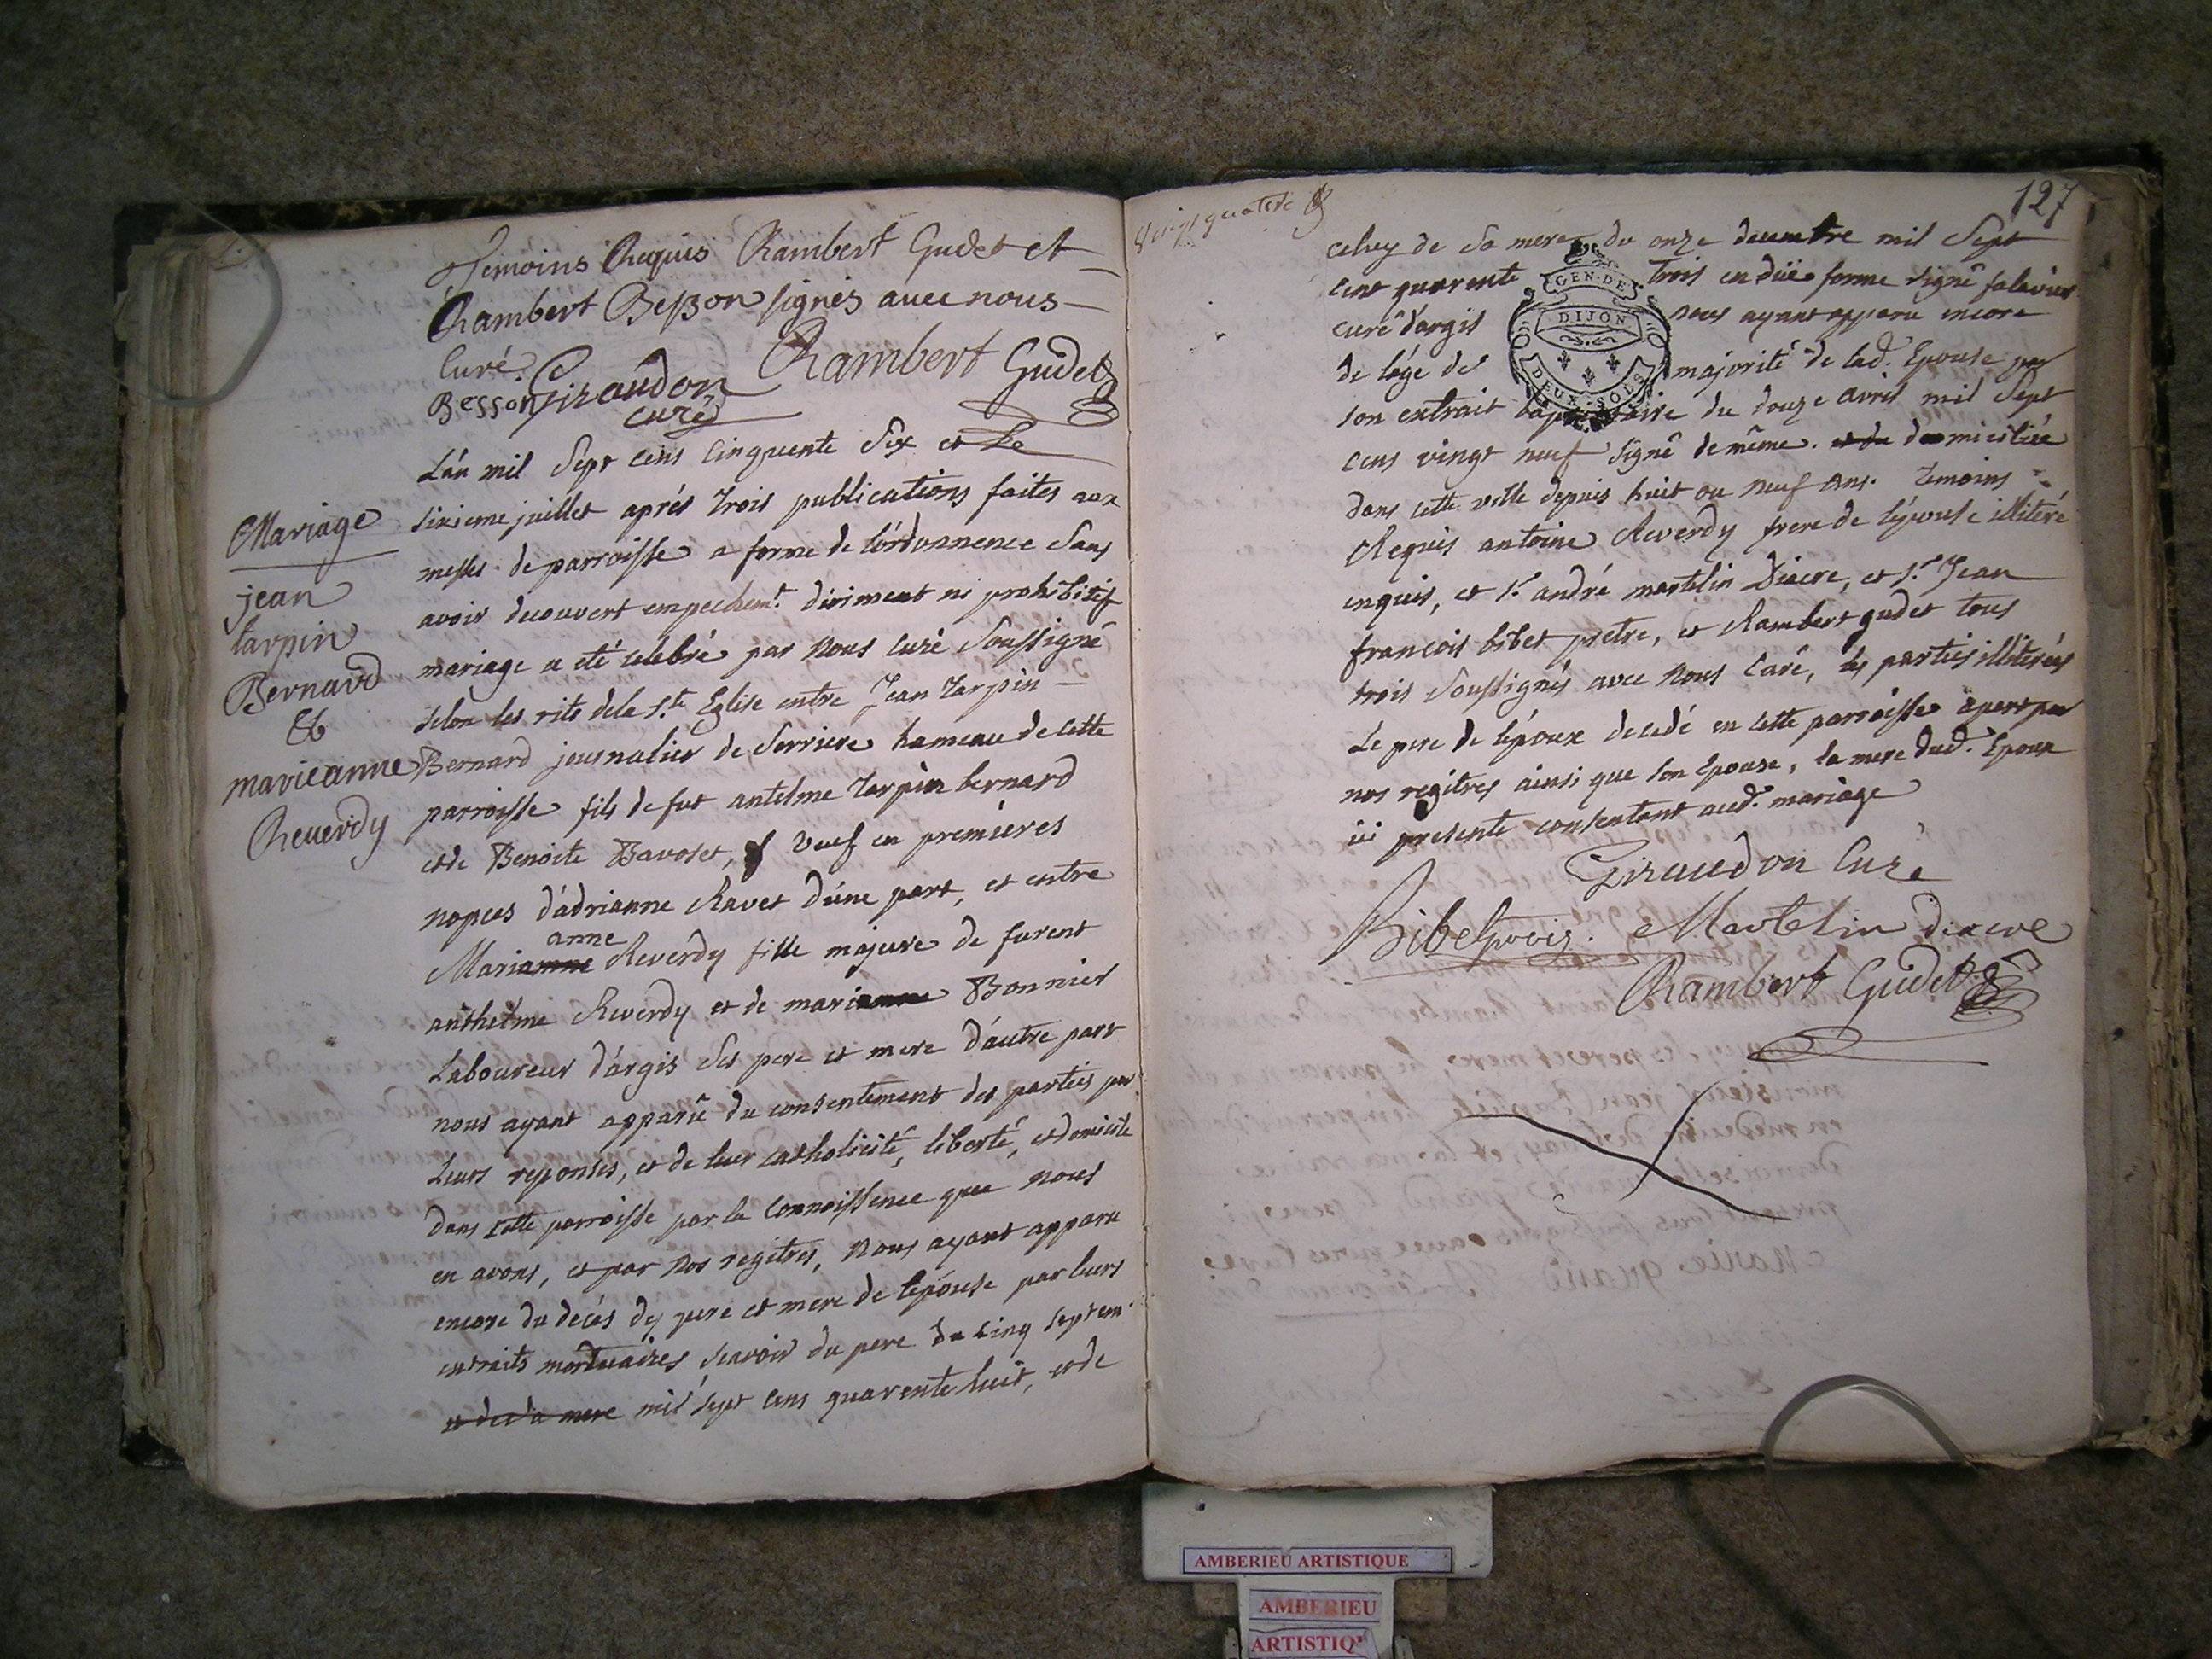 Temoins Requis Rambert Gudet et
Rambert Besson signés avec nous
Curé.
Besson Giraudon Rambert Gudet
curé
L'an mil Sept cens Cinquente Six et Le
Sixieme juillet aprés trois publications faites aux
messes de parroisse a forme de l'ordonnence Sans
avoir decouvert empechemt. diriment ni prohibitif
mariage a eté célébré par nous Curé Soussigné
selon les rits de la Ste. Eglise entre Jean Tarpin
Bernard journalier de Serriere hameau de cette
parroisse fils de fut antelme Tarpin bernard
et de Benoite Bavoset, veuf en premieres
nopces d'adrianne Ravet d'une part, et entre
anne
Marianne Reverdy fille majeure de furent
anthelme Reverdy et de marianne Bonnier
Laboureur d'argis Ses pere et mere d'autre part
nous ayant apparû du consentement des parties par
Leurs reponses, et de leur catholicité, liberté, et domicile
dans cette parroisse par la Connoissence que nous
en avons, et par nos regitres, nous ayant apparu
encore du decés des pere et mere de l'epouse par leurs
extraits mortuaires, scavoir du pere du cinq septem
et de sa mere mil sept cens quarente huit, et de
Mariage
jean
tarpin
Bernard
&
marie anne
Reverdy
vingt quatre
127
celuy de sa mere du onze decembre mil Sept
cent quarente trois en düe forme signé
curé d'argis nous ayant apparu encore
de l'age de majorité de lad. Epouse par
son extrait baptistaire du douze avril mil Sept
cens vingt neuf signé de même. et de domiciliée
dans cette ville depuis huit ou neuf ans. temoins
Requis antoine Reverdy frere de l'épouse illiteré
enquis, et Sr. andré martelin Diacre, et Sr. Jean
francois bibet pretre, et Rambert gudet tous
trois Soussignés avec nous Curé, les parties illiterées
Le pere de l'époux decedé en cette parroisse apert par
nos regitres ainsi que son Epouse, la mere dud. Epoux
ici presente consentant aud. mariage
Giraudon Curé
Martelin diacre
Rambert Gudet
GEN. DE
DIJON
DEUX SOLS
AMBERIEU ARTISTIQUE
AMBERIEU
ARTISTIQ